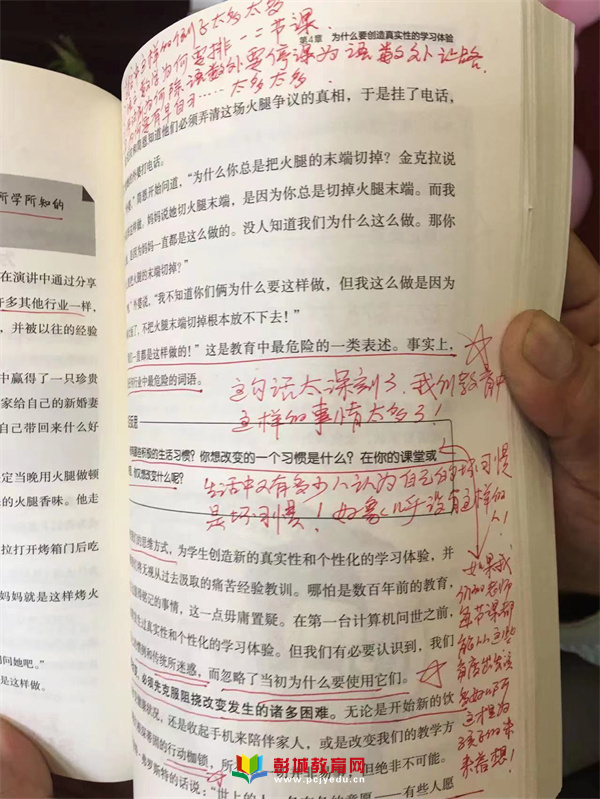 太多太多
第4章 为什么要创造真实性的学习体验
数学为何要排一二节课
为何除语数外要停课为语数外让路.
有早自习……太多太多.
知道他们必须弄清这场火腿争议的真相，于是挂了电话，
打电话。
开始问道，“为什么你总是把火腿的末端切掉？金克拉说
这样做。妈妈说她切火腿末端，是因为你总是切掉火腿末端。而我
是因为妈妈一直都是这么做的。没人知道我们为什么这么做。那你
把火腿的末端切掉？”
外婆说，“我不知道你们俩为什么要这样做，但我这么做是因为
不把火腿末端切掉根本放不下去！”
一直都是这样做的！”这是教育中最危险的一类表述。事实上，
行业中最危险的词语。
这句话太深刻了，我们教育中
这样的事情太多了！
反思
哪些积极的生活习惯？你想改变的一个习惯是什么？在你的课堂或
你又想改变什么呢？
生活中又有多少人认为自己的坏习惯
是坏习惯！好像几乎没有这样的
人！
的思维方式，为学生创造新的真实性和个性化的学习体验，并
无视从过去汲取的痛苦经验教训。哪怕是数百年前的教育，
的事情，这一点毋庸置疑。在第一台计算机问世之前，
过真实性和个性化的学习体验。但我们有必要认识到，我们
惯例和传统所迷惑，而忽略了当初为什么要使用它们。
必须先克服阻挠改变发生的诸多困难。无论是开始新的饮
状况，还是收起手机来陪伴家人，或是改变我们的教学方
的行动枷锁，所
但绝非不可能。
弗罗斯特的话说：“世上的人
有些人愿
如果我
们的老师
每节课都
能从这些
角度出发该
多好啊
这才是为
孩子的未
来着想！
所学所知的
在演讲中通过分享
许多其他行业一样，
，并被以往的经验
中赢得了一只珍贵
家给自己的新婚妻
自己带回来什么好
定当晚用火腿做顿
的火腿香味。他走
拉打开烤箱门后吃
妈妈就是这样烤火
问她吧。”
是这样做。
彭城教育网
www.pcjyedu.cn